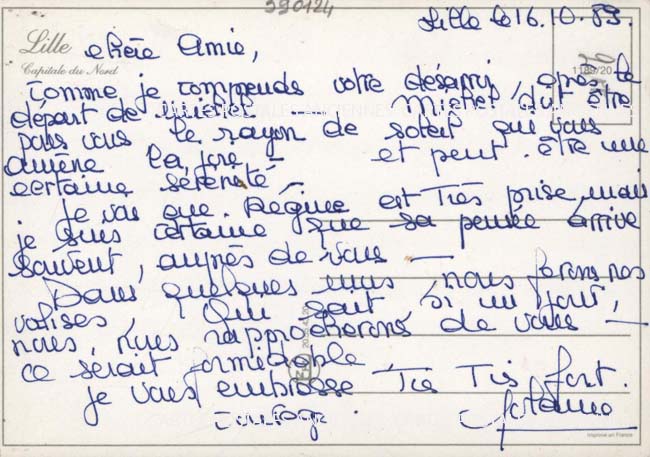 590124
Lille le 16.10.89.
Lille
Capitale du Nord
chère Amie,
1189/20
Comme je comprends votre désarroi, après le
départ de Michel — Michel, doit être
pour vous, le rayon de soleil qui vous
amène la joie — et peut-être une
certaine sérénité —
je vois que Régine est Très prise, mais
je suis certaine que sa pensée arrive
souvent, auprès de vous —
Dans quelques mois nous ferons nos
valises, Qui sait, si un jour,
nous, nous rapprocherons de vous —
ce serait formidable
je vous embrasse Très Très fort.
Courage.
Imprimé en France